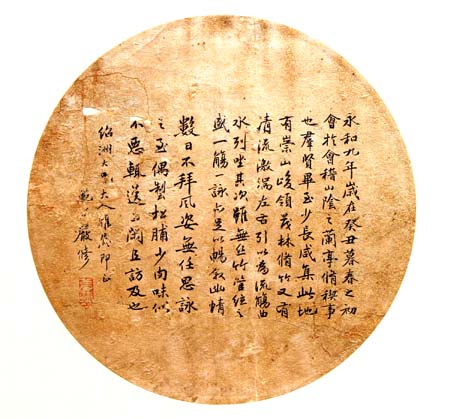 永和九年歲在癸丑暮春之初
會於會稽山陰之蘭亭脩稧事
也羣賢畢至少長咸集此地
有崇山峻領茂林脩竹又有
清流激湍左右引以為流觴曲
水列坐其次雖無丝竹管絃之
盛一觴一詠亦足以暢叙幽情
數日不拜風姿無任思詠
之至偶製松脯少尚味似
不惡輒送上聞且訪及也
紹洲大大人雅即正
嚴修